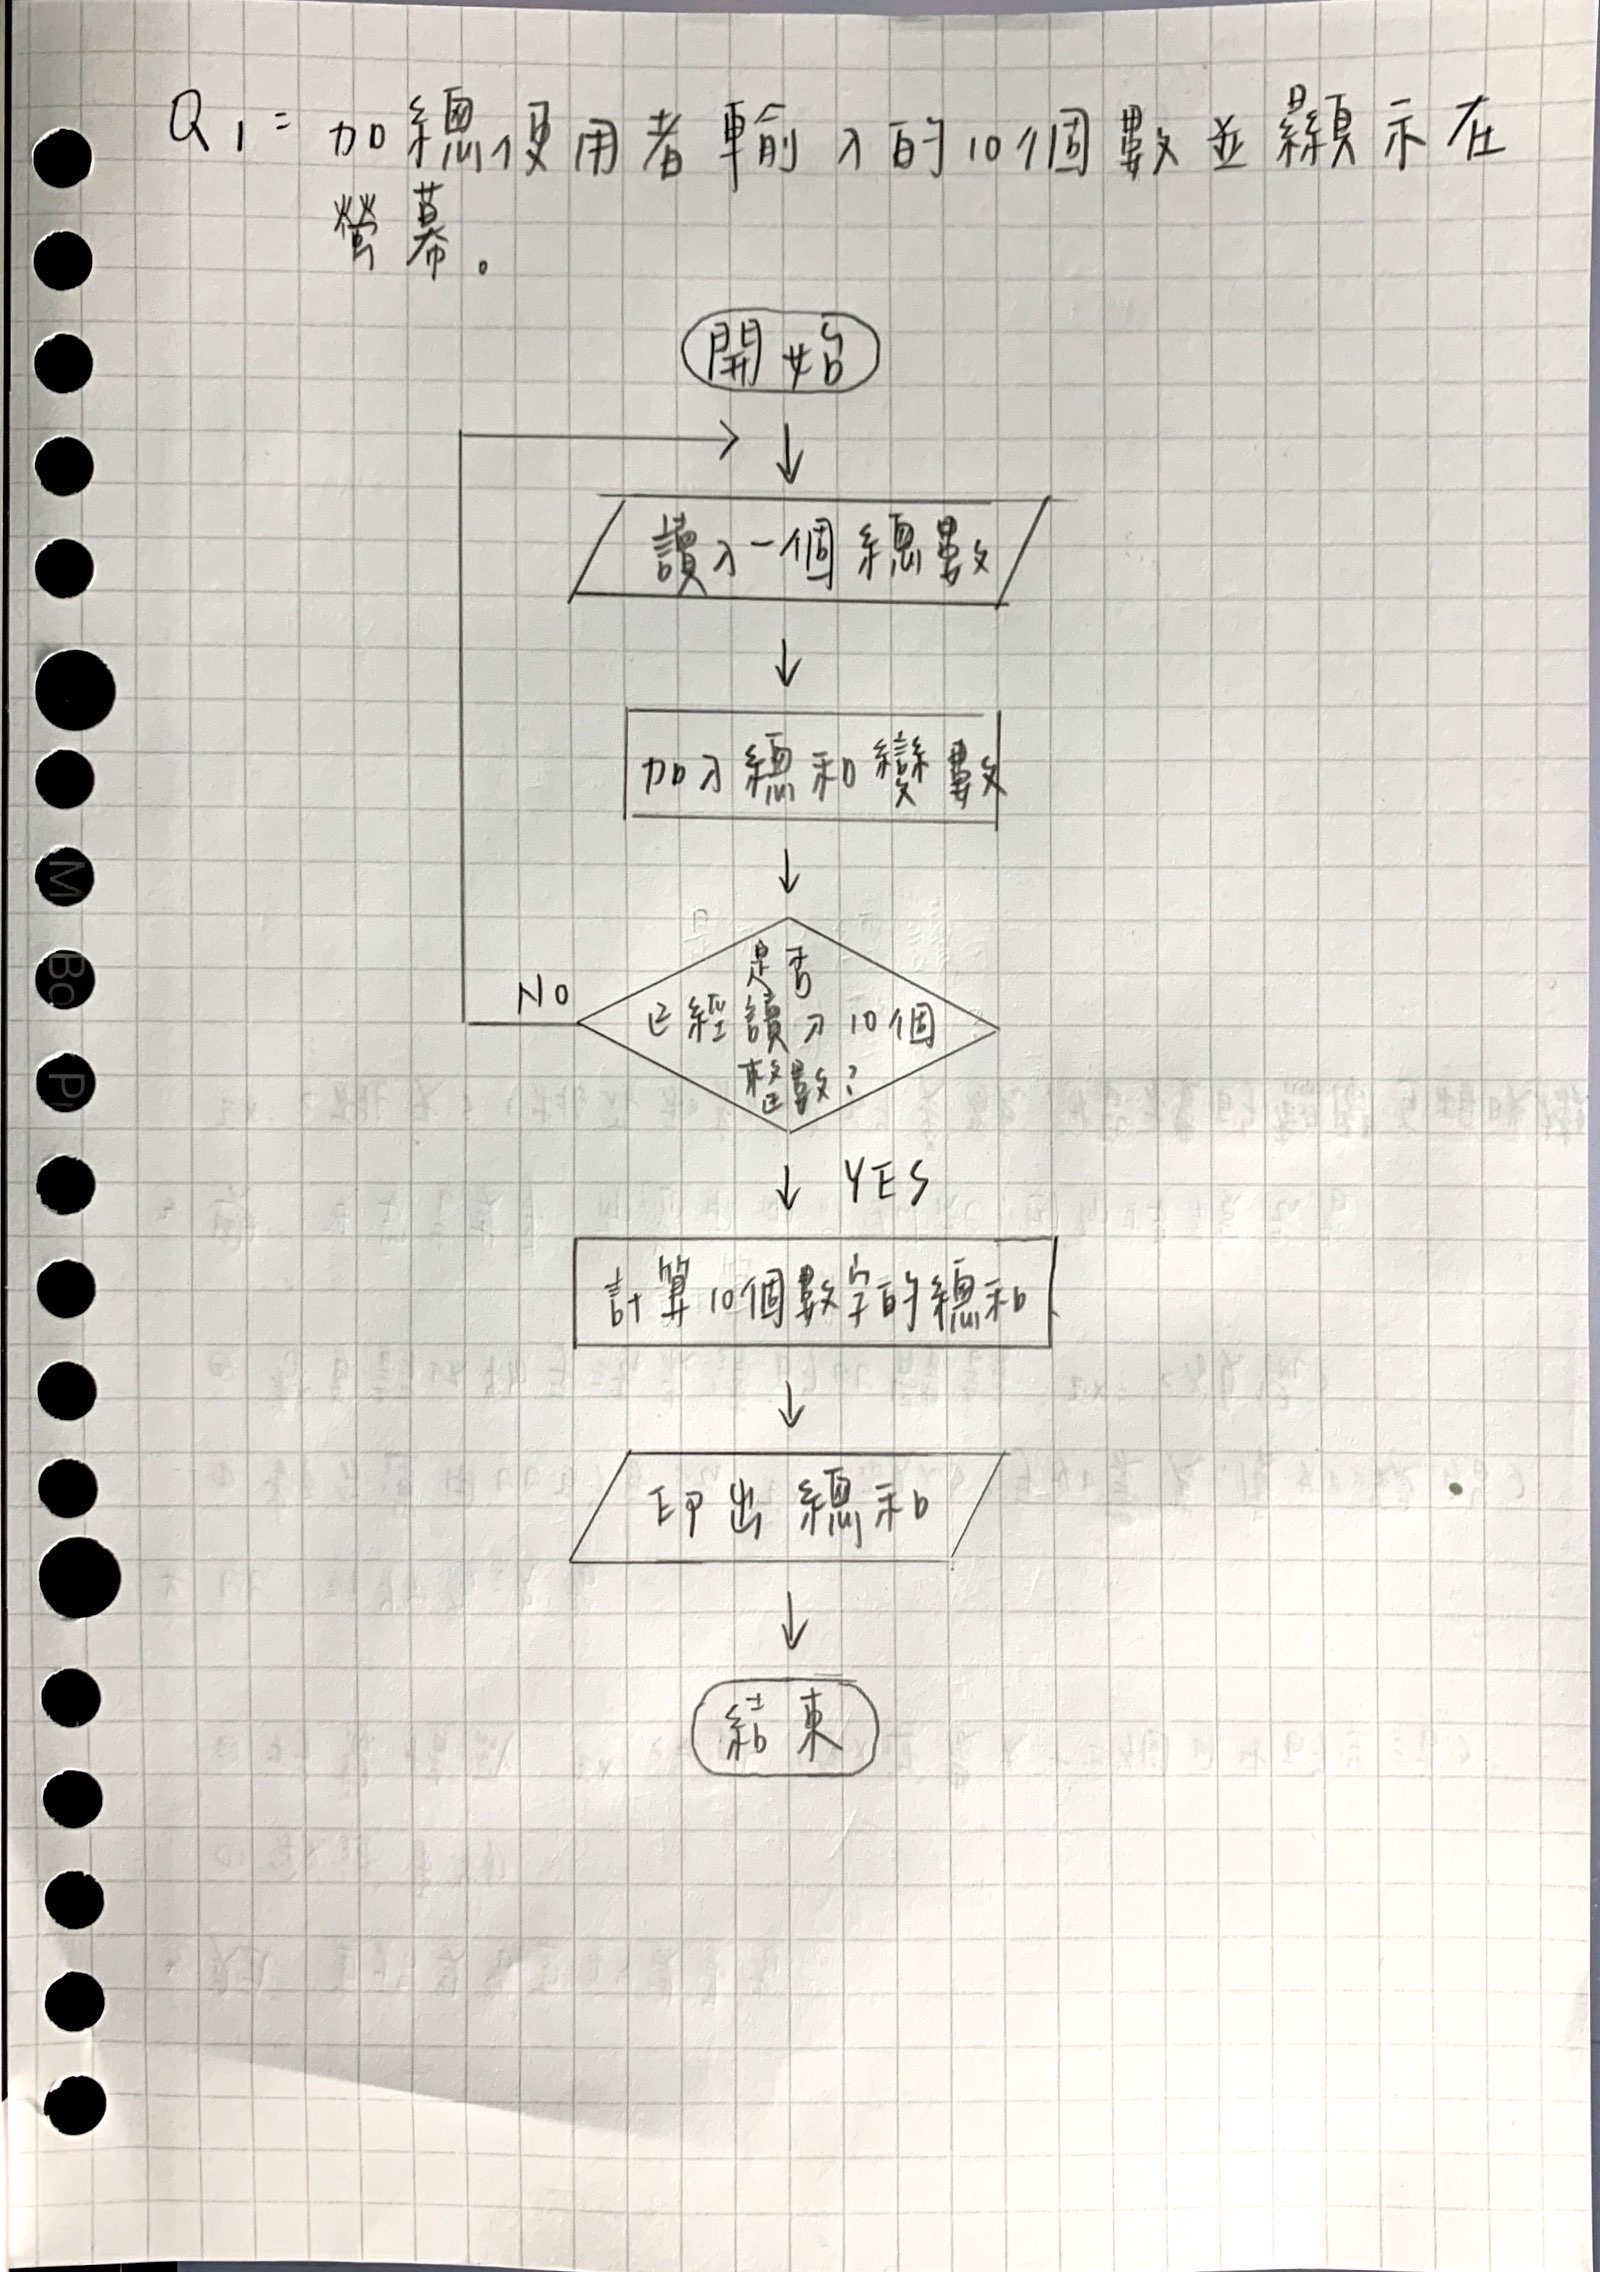 Q1= 加總使用者輸入的10個數並顯示在
螢幕。
開始
讀入一個總數
加入總和變數
NO
是否
已經讀入10個
整數?
YES
計算10個數字的總和
印出總和
結束